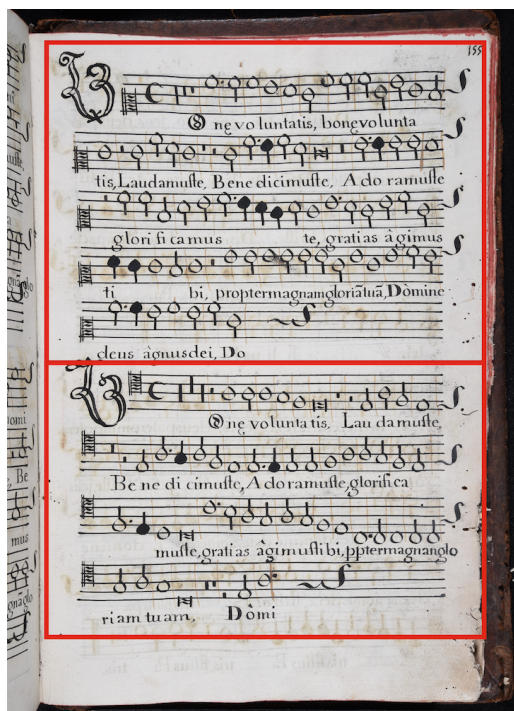 155
B
Onę vo luntatis, bonę volunta
tis, Laudamuſte, Bene dicimuſte, A do ramuſte
glori fi camus te, gratias àgimus
ti bi, propter magnam gloriã tuã, Dòmine
deus àgnus dei, Do
B
Onę volunta tis, Lau damuſte,
Be ne di cimuſte, A do ramuſte, glorifica
muſte, gratias àgimuſti bi, ppter magnan glo
riam tuam, Dòmi